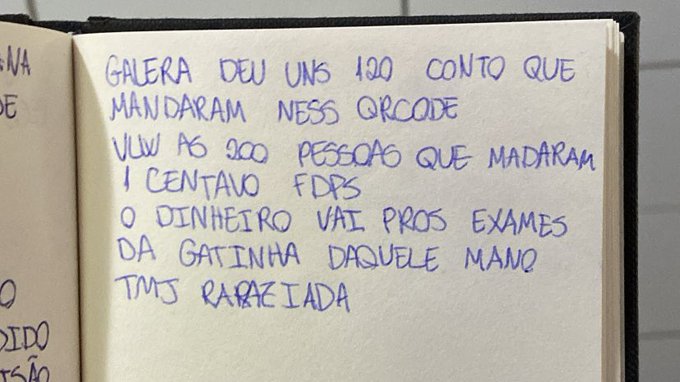 GALERA DEU UNS 120 CONTO QUE
MANDARAM NESS QRCODE
VLW AS 200 PESSOAS QUE MADARAM
1 CENTAVO FDPS
O DINHEIRO VAI PROS EXAMES
DA GATINHA DAQUELE MANO
TMJ RAPAZIADA
NA
DE
O
DIDO
ISÃO